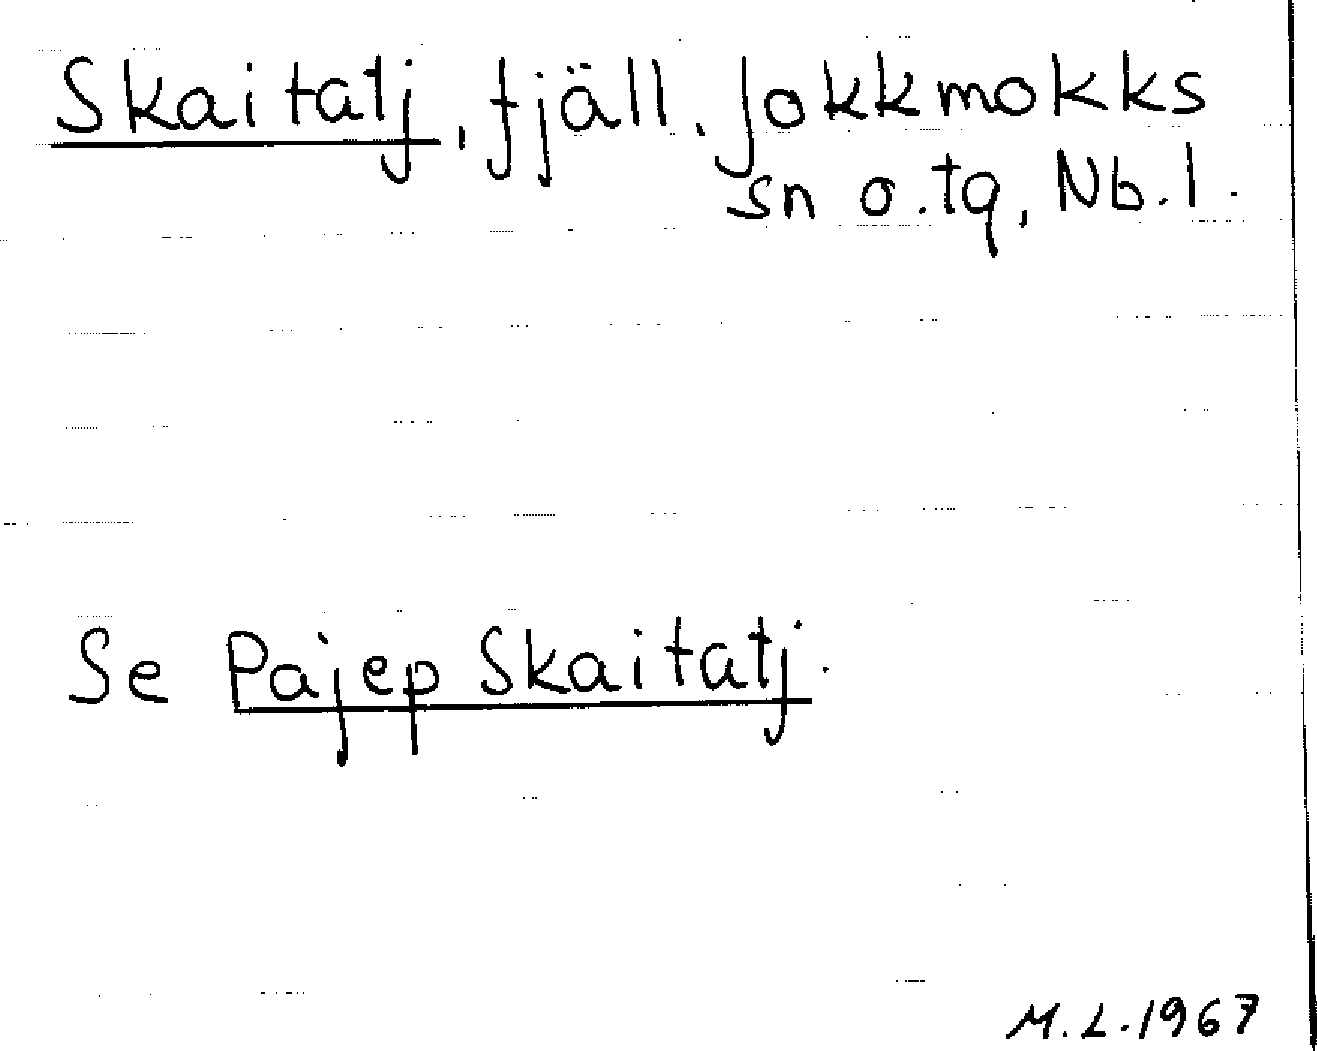 Skaitatj, fjäll, Jokkmokks
sn o. tg, Nb. l.
Se Pajep Skaitatj.
M. L. 1967